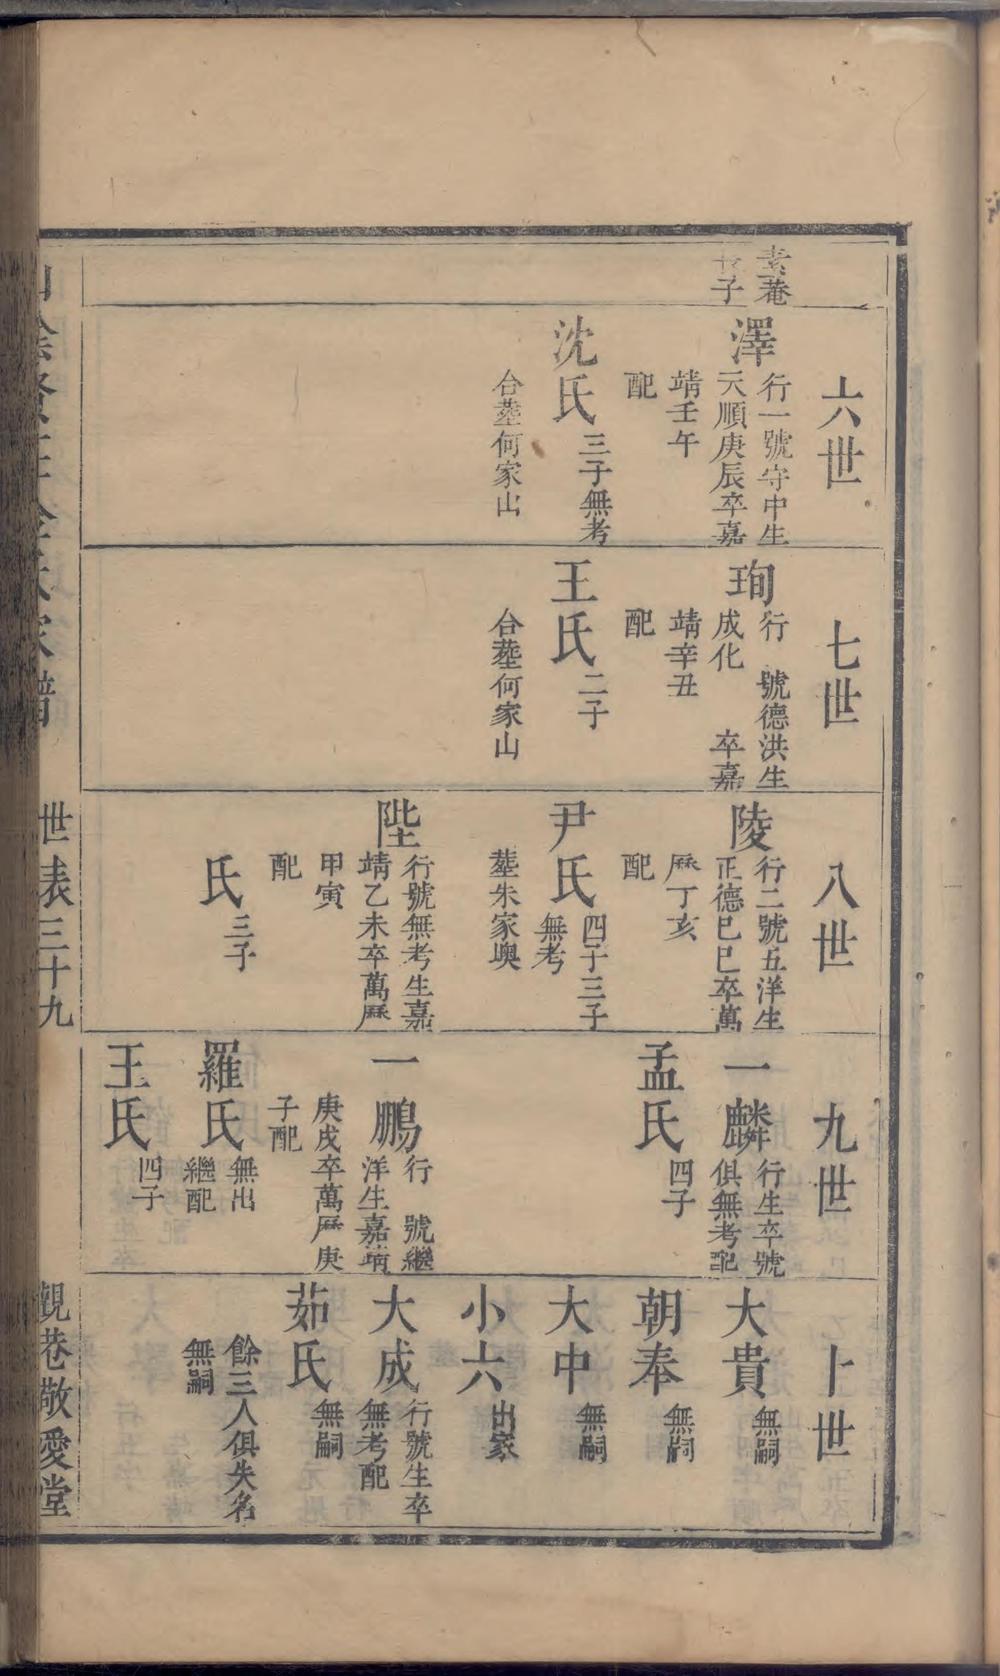 素菴
長子
六世
澤
行一號守中生
天順庚辰卒嘉
靖壬午
配
沈氏
三子無考
合塟何家山
七世
珣
行 號德洪生
成化 卒嘉
靖辛丑
配
王氏
二子
合塟何家山
八世
陵
行二號五洋生
正德已巳卒萬
厯丁亥
配
尹氏
四子三子
無考
塟朱家墺
陛
行號無考生嘉
靖乙未卒萬厯
甲寅
配
氏
三子
九世
一麟
行生卒號
俱無考配
孟氏
四子
一鵬
行 號繼
洋生嘉靖
庚戌卒萬厯庚
子配
羅氏
無出
繼配
王氏
四子
十世
大貴
無嗣
朝奉
無嗣
大中
無嗣
小六
出家
大成
行號生卒
無考配
茹氏
無嗣
餘三人俱失名
無嗣
世表三十九
觀巷敬愛堂